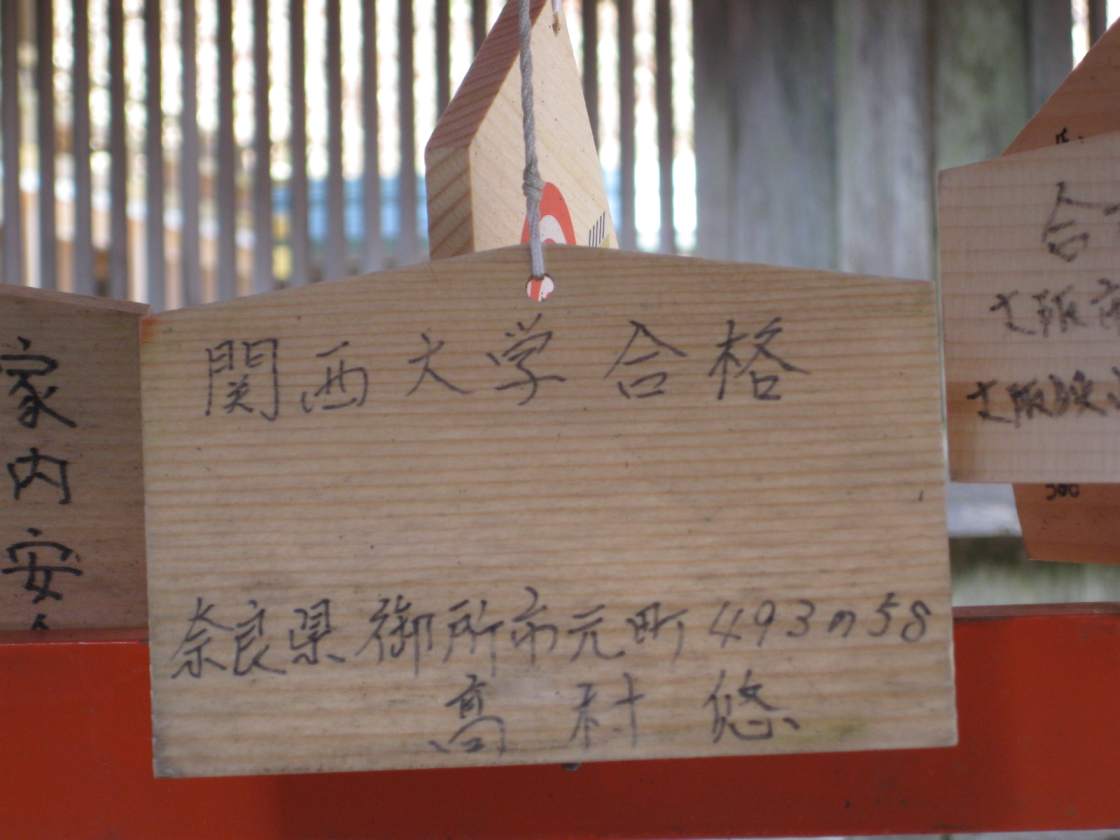 関西大学合格
奈良県御所市元町493の58
高村悠
家内安
合
大阪
大阪